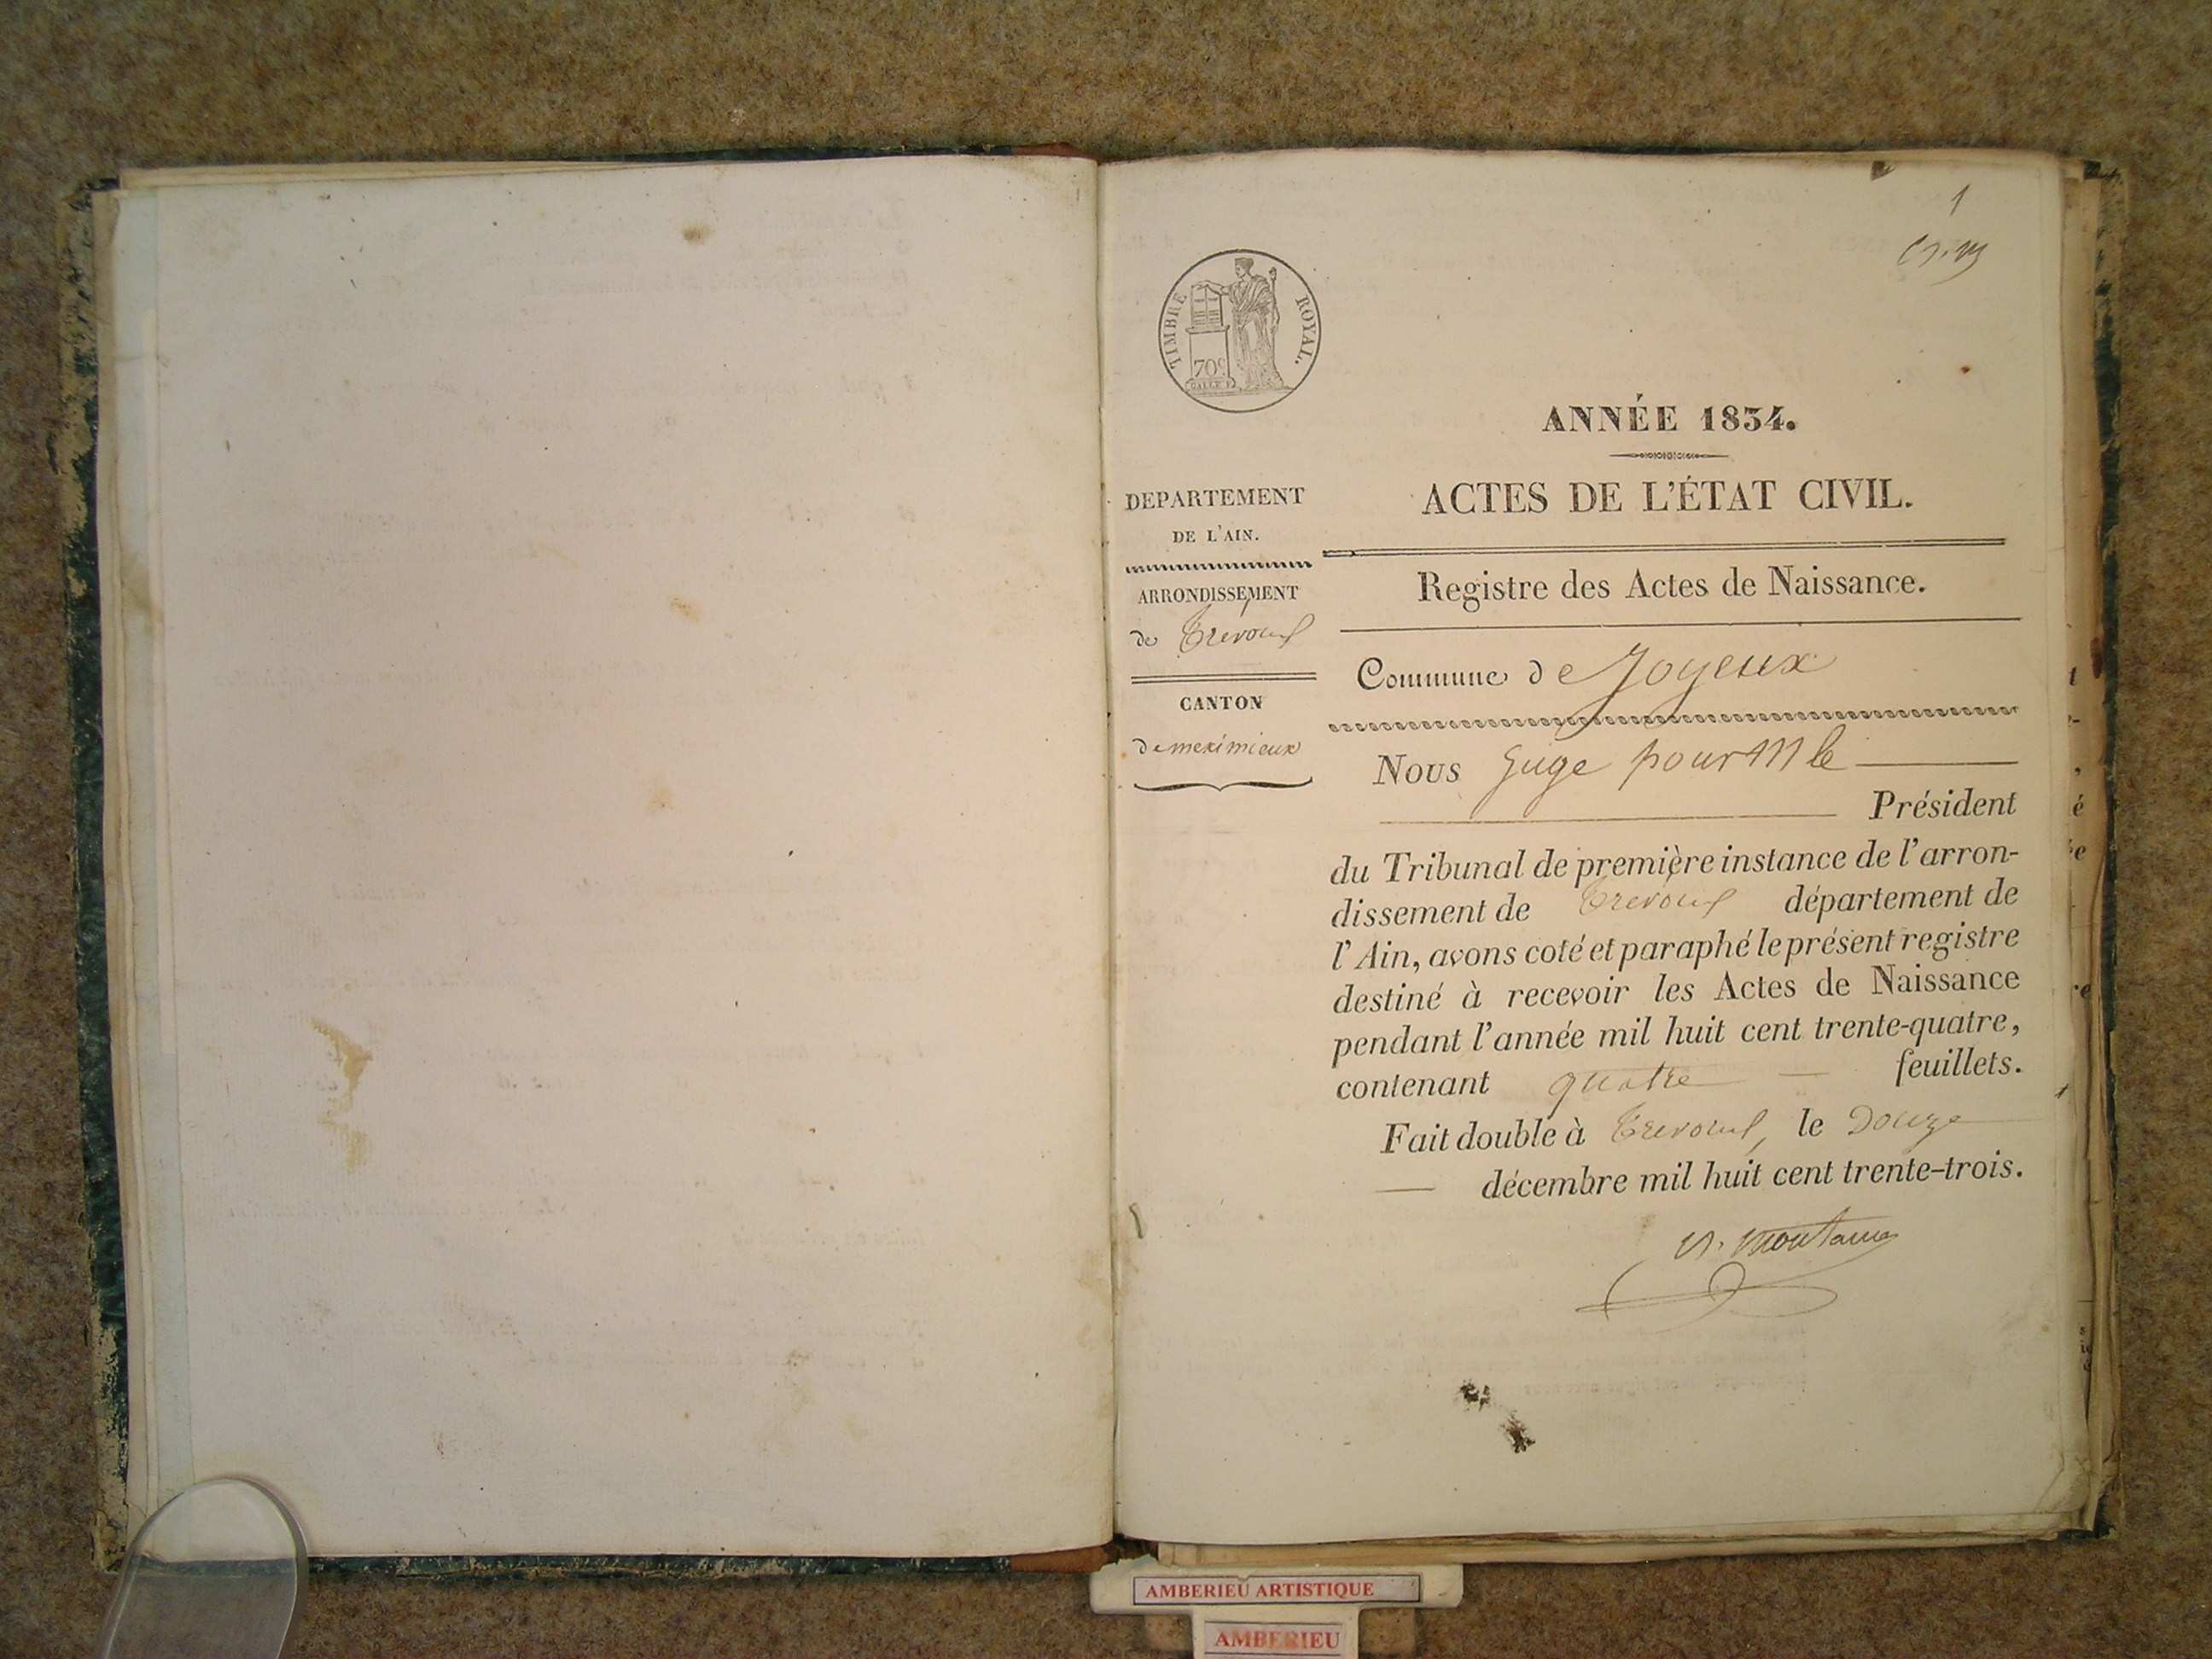 1
TIMBRE ROYAL.
70c
GALLE F
ANNÉE 1834.
ACTES DE L'ÉTAT CIVIL.
DEPARTEMENT
DE L'AIN.
ARRONDISSEMENT
de Trévoux
CANTON
de meximieux
Registre des Actes de Naissance.
Commune de Joyeux
Nous Juge pour M le
Président
du Tribunal de première instance de l'arron-
dissement de Trévoux département de
l'Ain, avons coté et paraphé le présent registre
destiné à recevoir les Actes de Naissance
pendant l'année mil huit cent trente-quatre,
contenant quatre — feuillets.
Fait double à Trevoux, le Douze
— décembre mil huit cent trente-trois.
AMBERIEU ARTISTIQUE
AMBERIEU